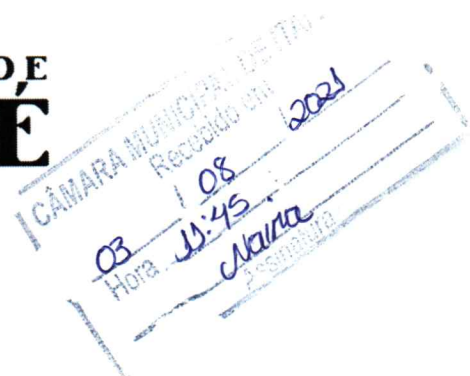 DE
É
CÂMARA MUNICIPAL DE ITA
Recebido em
03 / 08 / 2021
Hora 11:45
Naina
Assinatura